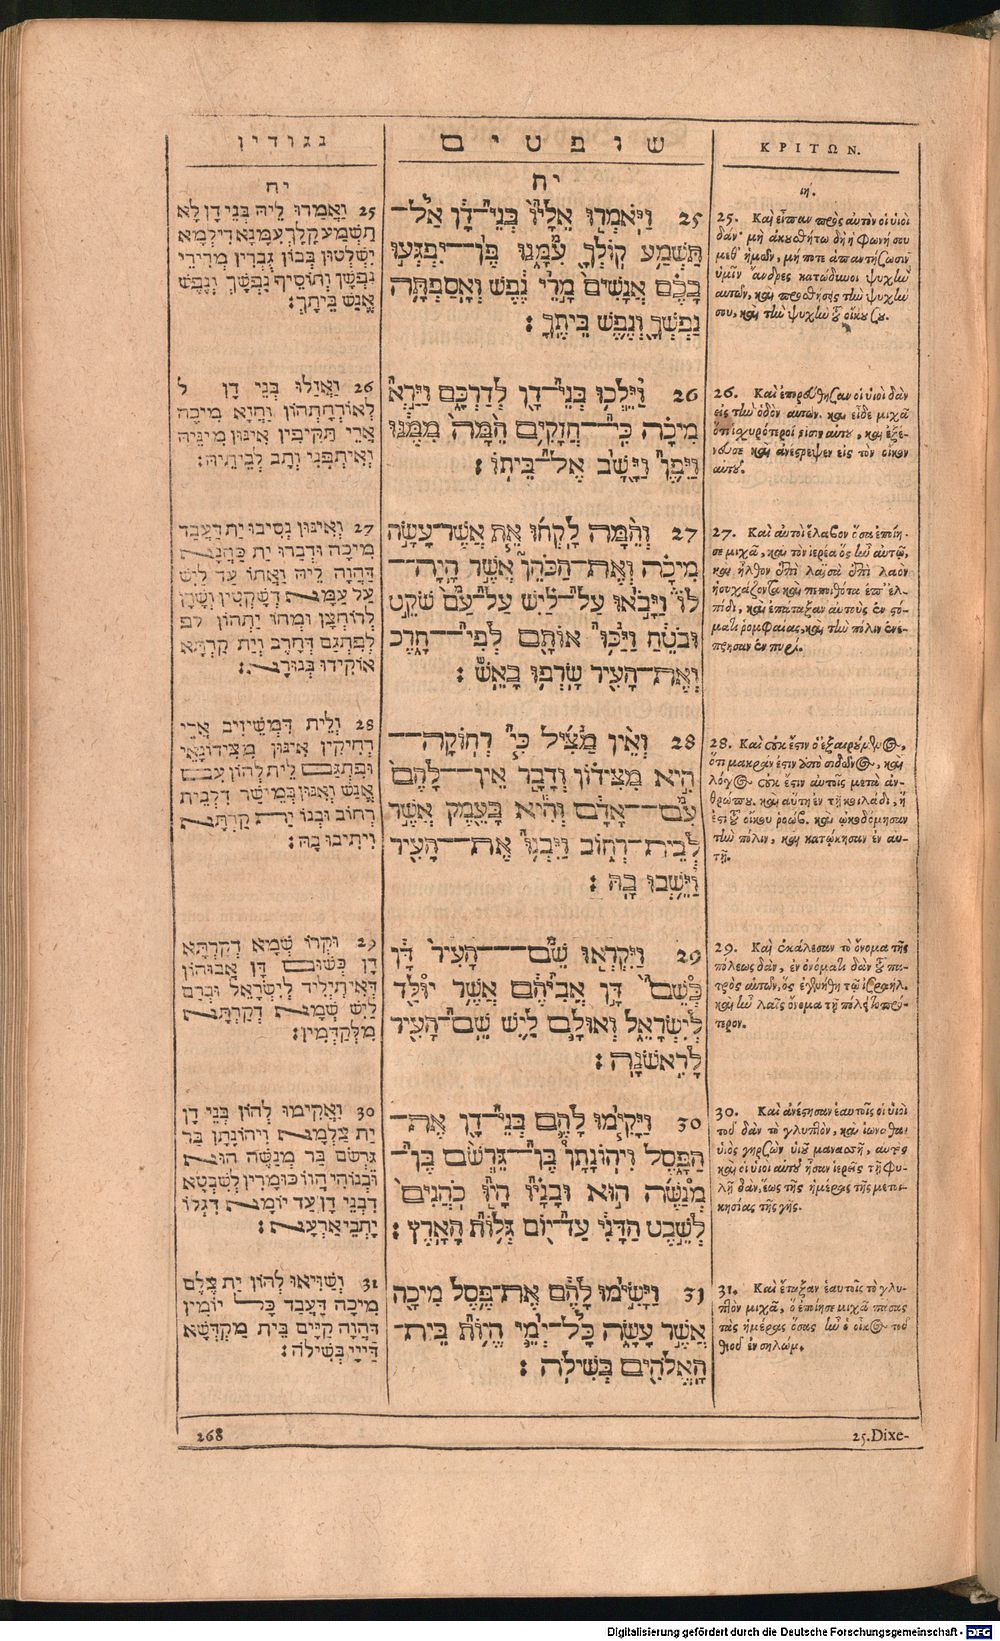 נגודין
יח
25 וַאֲמַרוּ לֵיהּ בְּנֵי דָן לָא
תַשְׁמַע קָלָךְ עִמָּנָא דִילְמָא
יִשְׁלְטוּן בְּכוֹן גֻּבְרִין מְרִירֵי
נַפְשָׁן וְתוֹסֵיף נַפְשָׁךְ וְנֶפֶשׁ
אֱנָשׁ בֵּיתָךְ׃
26 וַאֲזַלוּ בְּנֵי דָן ל
לְאוֹרְחָתְהוֹן וַחֲזָא מִיכָה
אֲרֵי תַקִּיפִין אִינּוּן מִינֵּיהּ
וְאִיתְפְּנִי וְתָב לְבֵיתֵיהּ׃
27 וְאִינּוּן נְסִיבוּ יַת דַּעֲבַד
מִיכָה וּדְבַרוּ יַת כַּהֲנָא
דַּהֲוָה לֵיהּ וַאֲתוֹ עַד לַיִשׁ
עַל עַמָּא דְּשָׁקְטִין וְשָׁרָן
לְרוֹחְצָן וּמְחוֹ יַתְהוֹן לפ
לְפִתְגַּם דְּחָרֶב וְיַת קַרְתָּא
אוֹקִידוּ בְּנוּרָא׃
28 וְלֵית דִּמְשֵׁיזִיב אֲרֵי
רְחִיקִין אִינּוּן מִצִּידוֹנָאֵי
וּפִתְגָּם לֵית לְהוֹן עִם
אֱנָשׁ וְאִנּוּן בְּמֵישַׁר דִּלְבֵית
רְחוֹב וּבְנוֹ יַת קַרְתָּא
וִיתִיבוּ בָהּ׃
29 וּקְרוֹ שְׁמָא דְקַרְתָּא
דָן כְּשׁוּם דָּן אֲבוּהוֹן
דְּאִיתְיְלִיד לְיִשְׂרָאֵל וּבְרַם
לַיִשׁ שְׁמָא דְקַרְתָּא
מִלְּקַדְמִין׃
30 וַאֲקִימוּ לְהוֹן בְּנֵי דָן
יַת צַלְמָא וִיהוֹנָתָן בַּר
גֵּרְשֹׁם בַּר מְנַשֶּׁה הוּא
וּבְנוֹהִי הֲווֹ כוּמְרִין לְשִׁבְטָא
דִבְנֵי דָן עַד יוֹמָא דִּגְלוֹ
יָתְבֵי אַרְעָא׃
31 וְשַׁוִּיאוּ לְהוֹן יַת צֶלֶם
מִיכָה דַּעֲבַד כָּל יוֹמִין
דַּהֲוָה קַיָּים בֵּית מַקְדְּשָׁא
דַּיְיָ בְּשִׁילֹה׃
שופטים
יח
25 וַיֹּאמְרוּ אֵלָיו בְּנֵי־דָן אַל־
תַּשְׁמַע קוֹלְךָ עִמָּנוּ פֶּן־יִפְגְּעוּ
בָכֶם אֲנָשִׁים מָרֵי נֶפֶשׁ וְאָסַפְתָּה
נַפְשְׁךָ וְנֶפֶשׁ בֵּיתֶךָ׃
26 וַיֵּלְכוּ בְנֵי־דָן לְדַרְכָּם וַיַּרְא
מִיכָה כִּי־חֲזָקִים הֵמָּה מִמֶּנּוּ
וַיִּפֶן וַיָּשָׁב אֶל־בֵּיתוֹ׃
27 וְהֵמָּה לָקְחוּ אֵת אֲשֶׁר־עָשָׂה
מִיכָה וְאֶת־הַכֹּהֵן אֲשֶׁר הָיָה־
לוֹ וַיָּבֹאוּ עַל־לַיִשׁ עַל־עַם שֹׁקֵט
וּבֹטֵחַ וַיַּכּוּ אוֹתָם לְפִי־חָרֶב
וְאֶת־הָעִיר שָׂרְפוּ בָאֵשׁ׃
28 וְאֵין מַצִּיל כִּי רְחוֹקָה־
הִיא מִצִּידוֹן וְדָבָר אֵין־לָהֶם
עִם־אָדָם וְהִיא בָּעֵמֶק אֲשֶׁר
לְבֵית־רְחוֹב וַיִּבְנוּ אֶת־הָעִיר
וַיֵּשְׁבוּ בָהּ׃
29 וַיִּקְרְאוּ שֵׁם־הָעִיר דָּן
בְּשֵׁם דָּן אֲבִיהֶם אֲשֶׁר יוּלַּד
לְיִשְׂרָאֵל וְאוּלָם לַיִשׁ שֵׁם־הָעִיר
לָרִאשֹׁנָה׃
30 וַיָּקִימוּ לָהֶם בְּנֵי־דָן אֶת־
הַפָּסֶל וִיהוֹנָתָן בֶּן־גֵּרְשֹׁם בֶּן־
מְנַשֶּׁה הוּא וּבָנָיו הָיוּ כֹהֲנִים
לְשֵׁבֶט הַדָּנִי עַד־יוֹם גְּלוֹת הָאָרֶץ׃
31 וַיָּשִׂימוּ לָהֶם אֶת־פֶּסֶל מִיכָה
אֲשֶׁר עָשָׂה כָּל־יְמֵי הֱיוֹת בֵּית־
הָאֱלֹהִים בְּשִׁילֹה׃
ΚΡΙΤΩΝ.
ιή.
25. Καὶ εἶπαν πρὸς αὐτὸν οἱ υἱοὶ
δάν· μὴ ἀκουσθήτω δὴ ἡ φωνή σου
μεθ' ἡμῶν, μή ποτε ἀπαντήσωσιν
ὑμῖν ἄνδρες κατώδυνοι ψυχὴν
αὐτῶν, καὶ προσθήσης τὴν ψυχὴν
σου, καὶ τὴν ψυχὴν τοῦ οἴκου σου.
26. Καὶ ἐπορεύθησαν οἱ υἱοὶ δὰν
εἰς τὴν ὁδὸν αὐτῶν. καὶ εἶδε μιχᾶ
ὅτι ἰσχυρότεροί εἰσιν αὐτοῦ, καὶ ἐξέ-
νευσε καὶ ἀνέστρεψεν εἰς τὸν οἶκον
αὐτοῦ.
27. Καὶ αὐτοὶ ἔλαβον ὅσα ἐποίη-
σε μιχᾶ, καὶ τὸν ἱερέα ὃς ἦν αὐτῷ,
καὶ ἦλθον ἐπὶ λαϊσὰ ἐπὶ λαὸν
ἡσυχάζοντα καὶ πεποιθότα ἐπ' ἐλ-
πίδι, καὶ ἐπάταξαν αὐτοὺς ἐν στό-
ματι ῥομφαίας, καὶ τὴν πόλιν ἐνέ-
πρησαν ἐν πυρί.
28. Καὶ οὐκ ἔστιν ὁ ἐξαιρούμενος,
ὅτι μακράν ἐστιν ἀπὸ σιδῶνος, καὶ
λόγος οὐκ ἔστιν αὐτοῖς μετὰ ἀν-
θρώπου. καὶ αὕτη ἐν τῇ κοιλάδι, ἥ
ἐστι τοῦ οἴκου ῥοώβ. καὶ ᾠκοδόμησαν
τὴν πόλιν, καὶ κατῴκησαν ἐν αὐ-
τῇ.
29. Καὶ ἐκάλεσαν τὸ ὄνομα τῆς
πόλεως δὰν, ἐν ὀνόματι δὰν τοῦ πα-
τρὸς αὐτῶν, ὃς ἐγεννήθη τῷ ἰσραήλ.
καὶ ἦν λαῒς ὄνομα τῇ πόλει τὸ πρό-
τερον.
30. Καὶ ἀνέστησαν ἑαυτοῖς οἱ υἱοὶ
τοῦ δὰν τὸ γλυπτὸν, καὶ ἰωνάθαν
υἱὸς γηρζὼν υἱοῦ μανασσῆ, αὐτὸς
καὶ οἱ υἱοὶ αὐτοῦ ἦσαν ἱερεῖς τῇ φυ-
λῇ δὰν, ἕως τῆς ἡμέρας τῆς μετοι-
κησίας τῆς γῆς.
31. Καὶ ἔταξαν ἑαυτοῖς τὸ γλυ-
πτὸν μιχᾶ, ὃ ἐποίησε μιχᾶ πάσας
τὰς ἡμέρας ὅσας ἦν ὁ οἶκος τοῦ
θεοῦ ἐν σηλώμ.
268
25. Dixe-
Digitalisierung gefördert durch die Deutsche Forschungsgemeinschaft - DFG